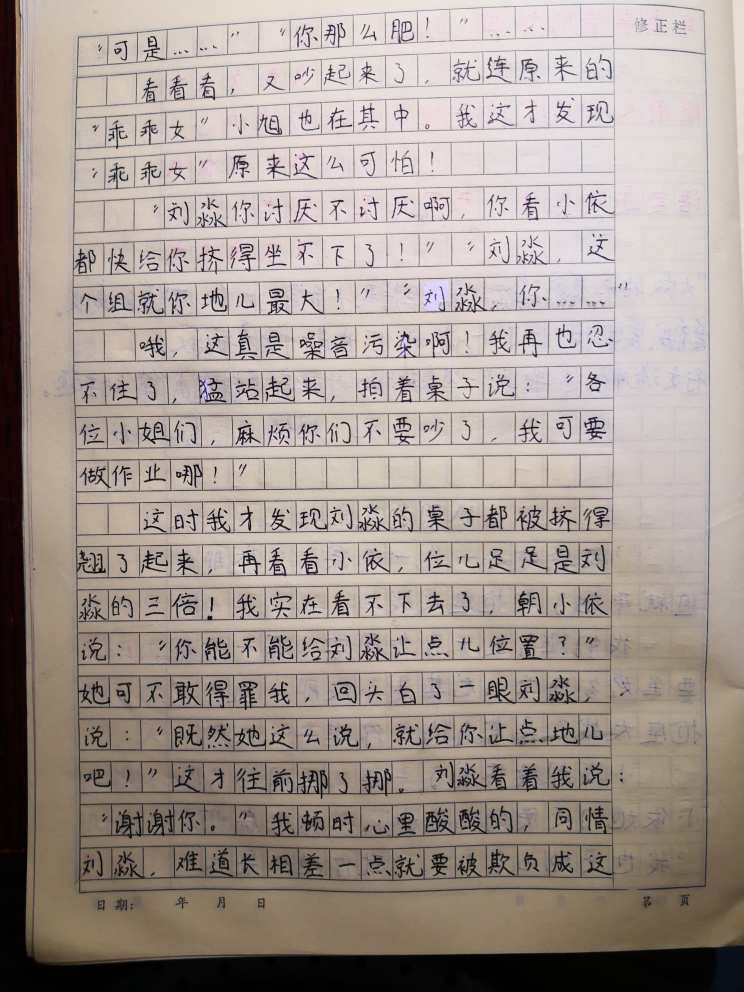 修正栏
“可是……”“你那么肥！”……
看看看，又吵起来了，就连原来的
“乖乖女”小旭也在其中。我这才发现
“乖乖女”原来这么可怕！
“刘淼你讨厌不讨厌啊，你看小依
都快给你挤得坐不下了！”“刘淼，这
个组就你地儿最大！”“刘淼，你……”
哦，这真是噪音污染啊！我再也忍
不住了，猛站起来，拍着桌子说：“各
位小姐们，麻烦你们不要吵了，我可要
做作业哪！”
这时我才发现刘淼的桌子都被挤得
翘了起来，再看看小依，位儿足足是刘
淼的三倍！我实在看不下去了，朝小依
说：“你能不能给刘淼让点儿位置？”
她可不敢得罪我，回头白了一眼刘淼，
说：“既然她这么说，就给你让点地儿
吧！”这才往前挪了挪。刘淼看着我说：
“谢谢你。”我顿时心里酸酸的，同情
刘淼，难道长相差一点就要被欺负成这
日期： 年 月 日 第 页